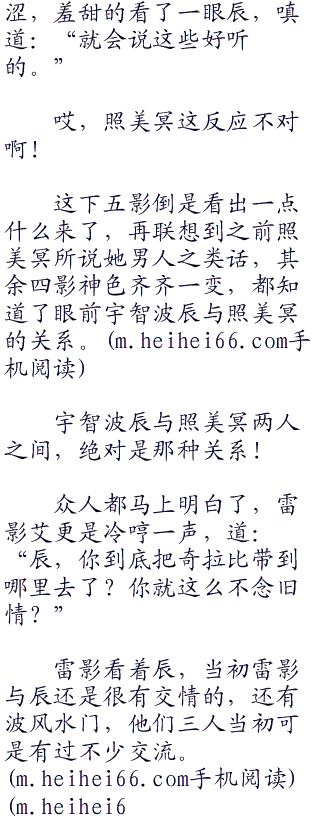 涩，羞甜的看了一眼辰，嗔
道：“就会说这些好听
的。”
哎，照美冥这反应不对
啊！
这下五影倒是看出一点
什么来了，再联想到之前照
美冥所说她男人之类话，其
余四影神色齐齐一变，都知
道了眼前宇智波辰与照美冥
的关系。(m.heihei66.com手
机阅读)
宇智波辰与照美冥两人
之间，绝对是那种关系！
众人都马上明白了，雷
影艾更是冷哼一声，道：
“辰，你到底把奇拉比带到
哪里去了？你就这么不念旧
情？”
雷影看着辰，当初雷影
与辰还是很有交情的，还有
波风水门，他们三人当初可
是有过不少交流。
(m.heihei66.com手机阅读)
(m.heihei6